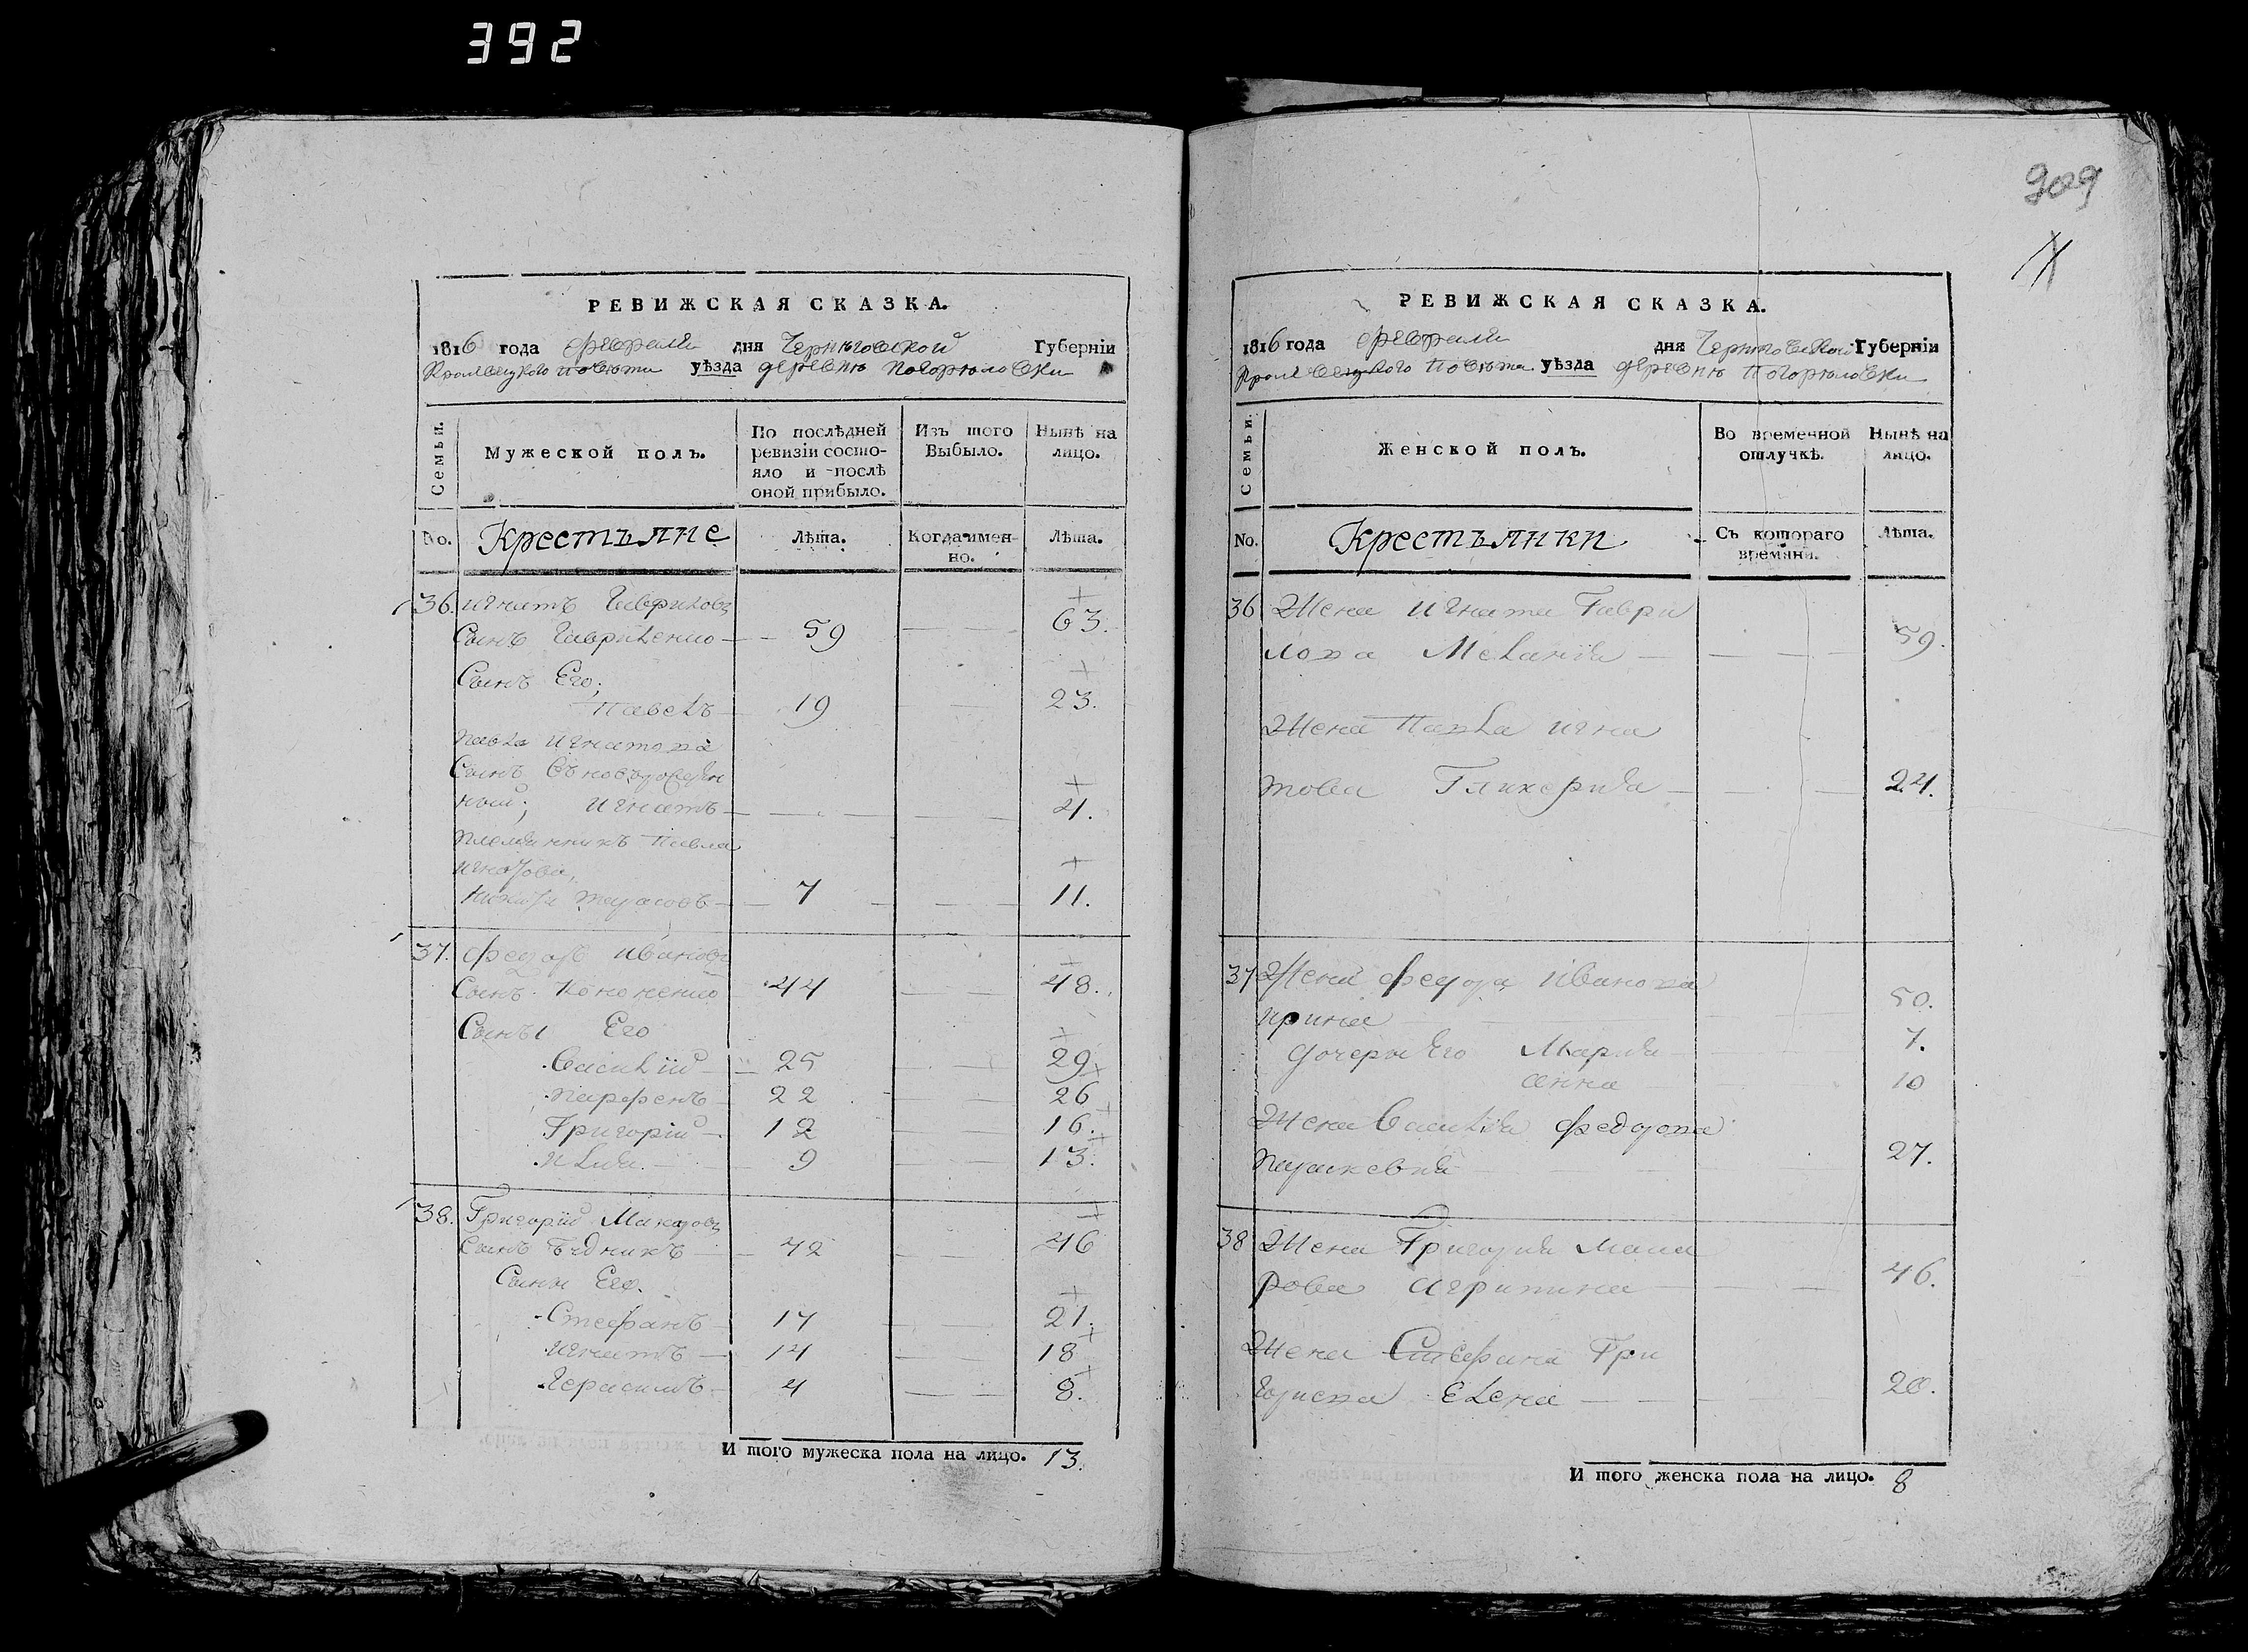 392
РЕВИЖСКАЯ СКАЗКА.
1816 года февраля дня Черниговской Губерніи
Кролевецкого повѣта уѣзда деревнѣ Погорѣловки
Семьи.
Мужеской полъ.
По послѣдней ревизіи состояло и послѣ оной прибыло.
Изъ того Выбыло.
Нынѣ на лицо.
No. Крестъяне Лѣта. Когда имен-но. Лѣта.
36. Игнатъ Гавриловъ
Сынъ Гавриленко 59 63.
Сынъ Его;
Павелъ 19 23.
Павла Игнатова
Сынъ
ный; Игнатъ 4.
Племянникъ Павла
Игнатова,
Никита 7 11.
37. Федоръ Ивановъ
Сынъ Кононенко 44 48.
Сыны Его
Василій 25 29.
Парфенъ 22 26
Григорій 12 16.
Илья 9 13.
38. Григорій Макаровъ
Сынъ 42 46
Сыны Его.
Стефанъ 17 21.
Игнатъ 14 18
Герасимъ 4 8.
И того мужеска пола на лицо. 13.
909
РЕВИЖСКАЯ СКАЗКА.
1816 года февраля дня Черниговской Губерніи
Кролевецкого Повѣта уѣзда деревнѣ Погорѣловки
Семьи.
Женской полъ.
Во временной отлучкѣ.
Нынѣ на лицо.
No. Крестъянки Съ котораго времяни. Лѣта.
36 Жена Игната Гаври
лова Меланія 59.
Жена Павла Игна
това Гликерия 24.
37 Жена Федора Иванова
Ирина 50.
Дочеры Его Мария 7.
Анна 10
Жена Василия Федорова
Парасковия 27.
38 Жена Григория Мака
рова Агрипина 46.
Жена Стефана Гри
горьева Елена 20.
И того женска пола на лицо. 8